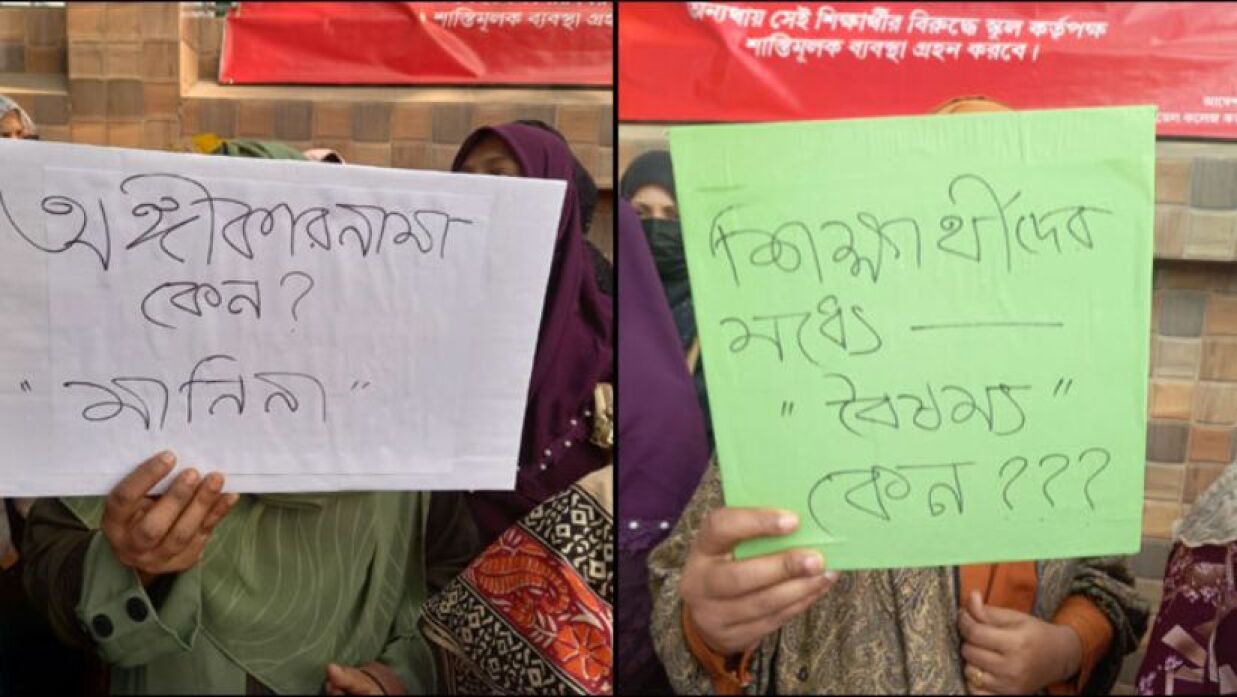 শাস্তিমূলক ব্যবস্থা গ্রহ
অঙ্গীকারনামা
কেন?
"মানিনা"
অন্যথায় সেই শিক্ষার্থীর বিরুদ্ধে স্কুল কর্তৃপক্ষ
শাস্তিমূলক ব্যবস্থা গ্রহন করবে।
কলেজ
শিক্ষার্থীদের
মধ্যে —
"বৈষম্য"
কেন???